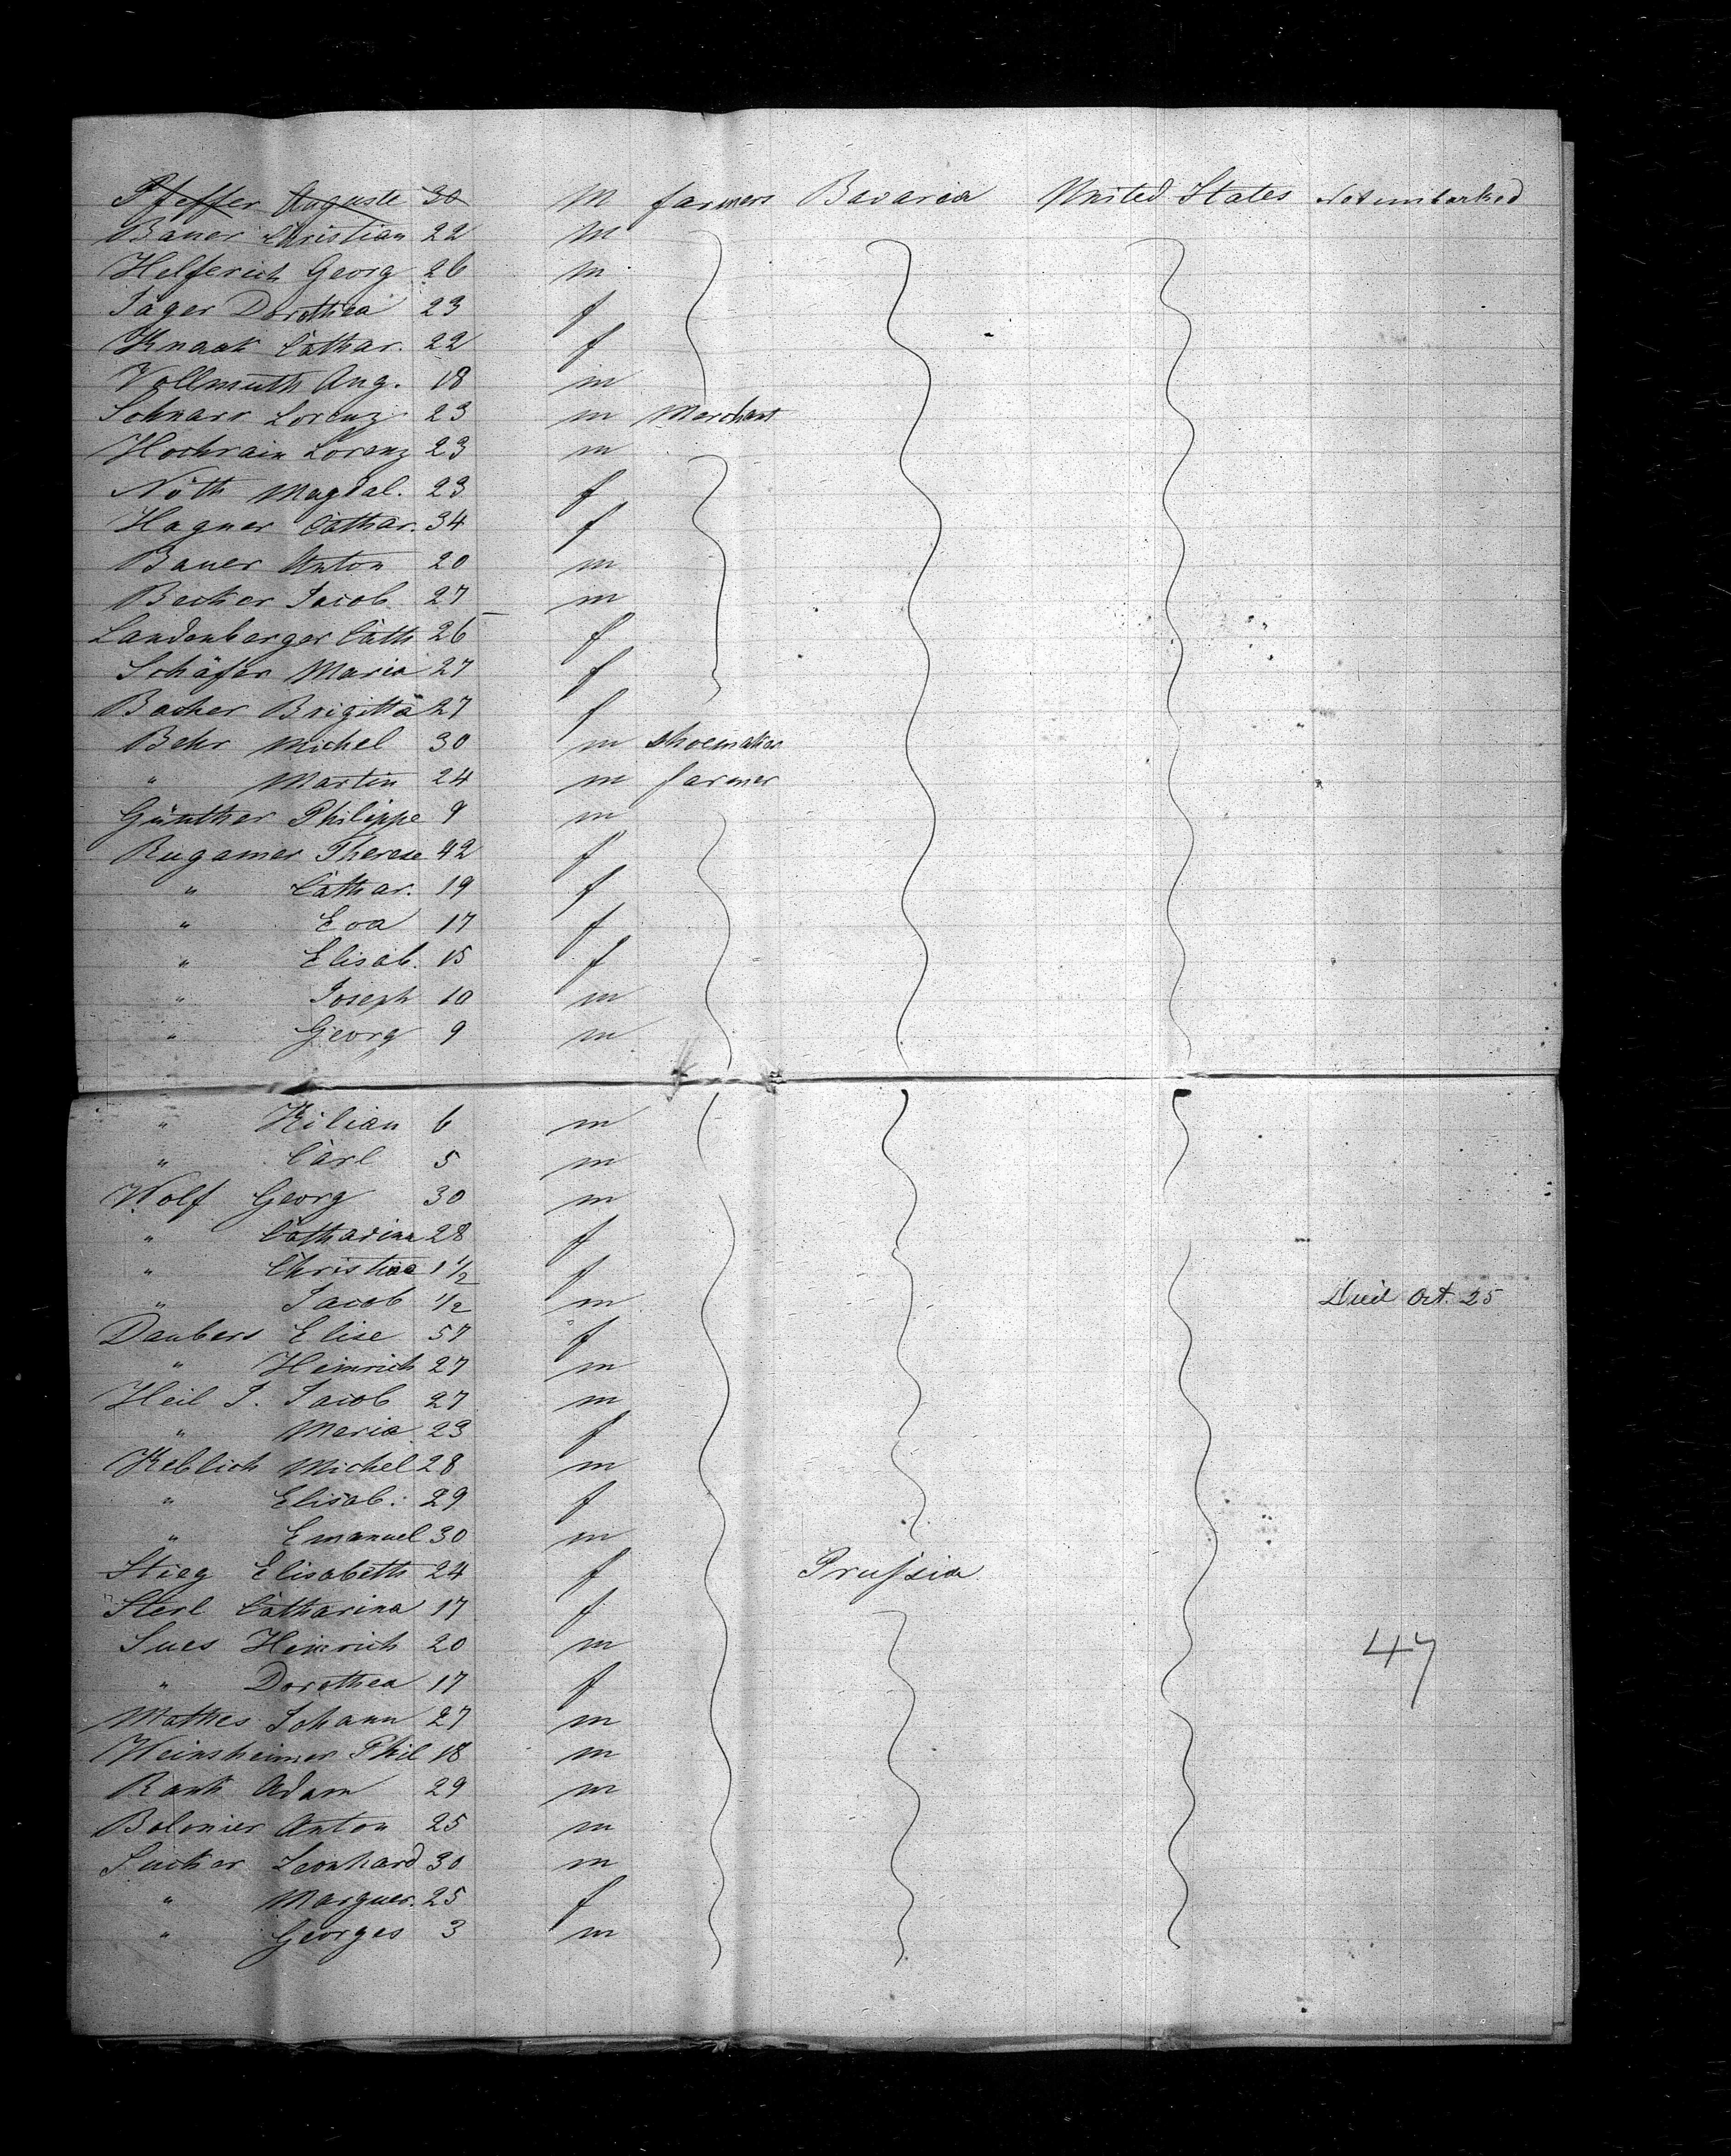 Pfeffer Auguste 30 M farmers Bavaria United States Not imbarked
Bauer Christian 22 m
Helferich Georg 26 m
Jäger Dorothea 23 f
Knaak Cathar. 22 f
Vollmuth Aug. 18 m
Schnarr Lorenz 23 m Merchant
Hochrain Lorenz 23 m
Nöth Magdal. 23 f
Hagner Cathar. 34 f
Bauer Anton 20 m
Becker Jacob 27 m
Landenberger Cath 26 f
Schäfer Maria 27 f
Bacher Brigitta 27 f
Behr Michel 30 m shoemaker
" Martin 24 m farmer
Günther Philippe 9 m
Rugamer Therese 42 f
" Cathar. 19 f
" Eva 17 f
" Elisab. 15 f
" Joseph 10 m
" Georg 9 m
" Kilian 6 m
" Carl 5 m
Wolf Georg 30 m
" Catharina 28 f
" 1 1/2 f
" Jacob 1/2 m Died Oct. 25
Daubers Elise 57 f
" Heinrich 27 m
Heil J. Jacob 27 m
" Maria 23 f
Keblich Michel 28 m
" Elisab. 29 f
" Emanuel 30 m
Stieg Elisabeth 24 f Prussia
Sterl Catharina 17 f
Sues Heinrich 20 m 47
" Dorothea 17 f
Mathes Johann 27 m
Weinsheimer Phil 18 m
Rank Adam 29 m
Bolonier Anton 25 m
Sucker Leonhard 30 m
" Marguer. 25 f
" Georges 3 m